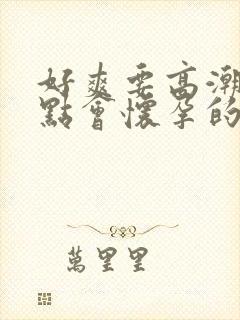 好爽要高潮
點會懷孕的
萬里里